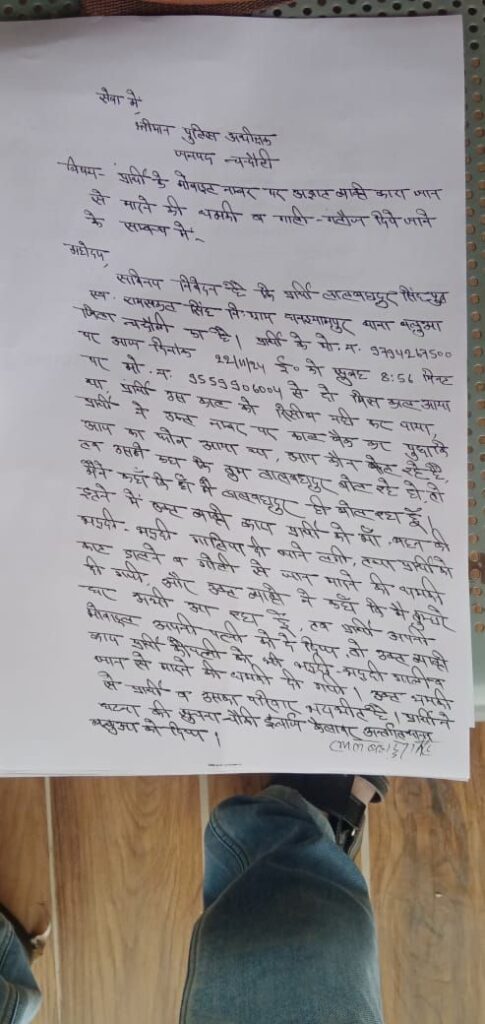 सेवा में,
श्रीमान पुलिस अधीक्षक
जनपद चन्दौली
विषय- प्रार्थी के मोबाइल नम्बर पर अज्ञात व्यक्ति द्वारा जान
से मारने की धमकी व गाली-गलौज दिये जाने
के सम्बन्ध में-
महोदय,
सविनय निवेदन है कि प्रार्थी लालबहादुर सिंह पुत्र
स्व. रामसकल सिंह नि० ग्राम घनश्यामपुर थाना बलुआ
जिला चन्दौली का है। प्रार्थी के मो. न. 9794267500
पर आज दिनांक 22/11/24 ई० को सुबह 8:56 मिनट
पर मो. न. 9559906004 से दो मिस काल आया
था, प्रार्थी उस काल को रिसीव नही कर पाया,
प्रार्थी ने उक्त नम्बर पर काल बैक कर पुछा कि
आप का फोन आया था, आप कौन बोल रहे है,
तब उसकी कहा कि तुम लालबहादुर बोल रहे हो, तो
मैंने कहाँ कि हाँ मै लालबहादुर ही बोल रहा हूँ।
इतने में उक्त व्यक्ति द्वारा प्रार्थी को माँ, बहन की
भद्दी-भद्दी गालियां दी जाने लगी, तथा प्रार्थी को
काट डालने व गोली से जान मारने की धमकी
दी गयी, और उक्त व्यक्ति ने कहाँ कि मै तुम्हारे
घर अभी आ रहा हूँ, तब प्रार्थी अपने
मोबाइल अपनी पत्नी को दे दिया, तो उक्त व्यक्ति
द्वारा प्रार्थी की पत्नी को भी भद्दी-भद्दी गाली व
जान से मारने की धमकी दी गयी। उक्त धमकी
से प्रार्थी व उसका परिवार भयभीत है। प्रार्थी ने
घटना की सुचना चौकी थाना
बलुआ को दिया।